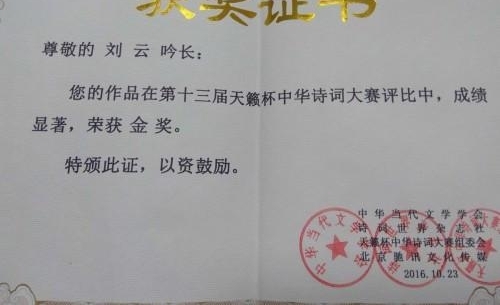 获奖证书
尊敬的 刘 云 吟长：
您的作品在第十三届天籁杯中华诗词大赛评比中，成绩
显著，荣获 金 奖。
特颁此证，以资鼓励。
中华当代文学学会
诗词世界杂志社
天籁杯中华诗词大赛组委会
北京驰讯文化传媒
2016.10.23
中华当代文学学会